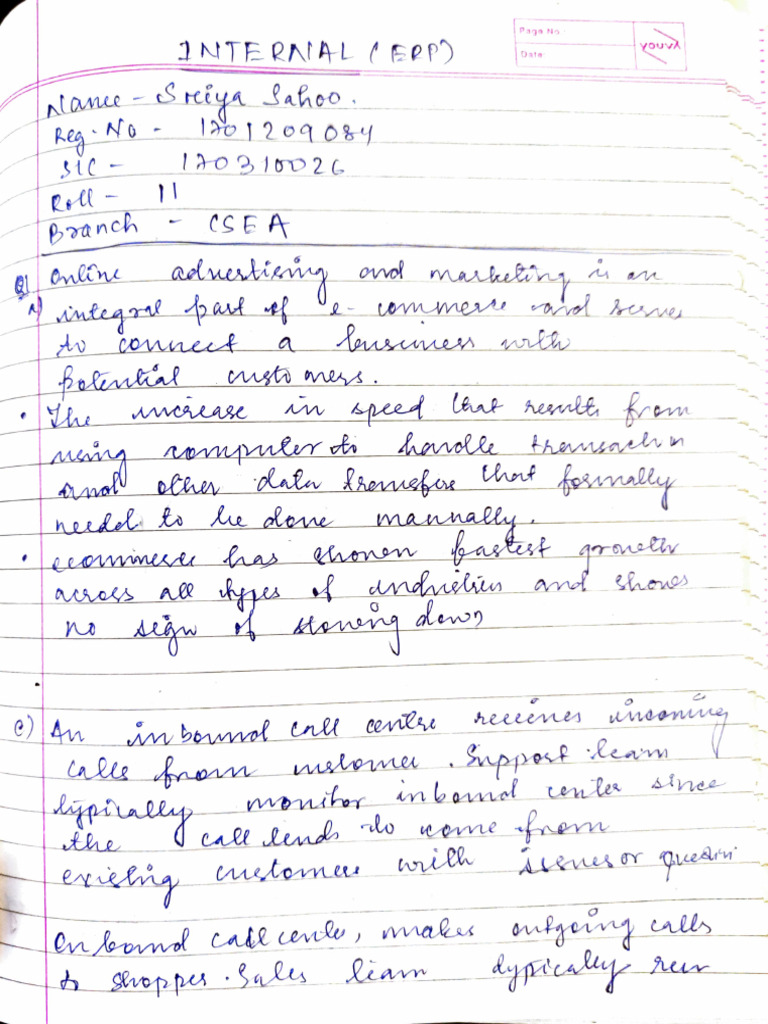 INTERNAL (ERP)
Page No.
Date
YOUVA
Name - Sreiya Sahoo.
Reg. No - 1701209084
SIC - 170310026
Roll - 11
Branch - CSEA
Q1 Online advertising and marketing is an
a) integral part of e-commerce and serves
to connect a business with
potential customers.
• The increase in speed that results from
using computer to handle transaction
and other data transfers that formally
needd to be done mannally.
• ecommerce has shown fastest growth
across all types of industries and shows
no sign of slowing down
c) An inbound call centre receives incoming
calls from customer. Support team
typically monitor inbound center since
the call tends to come from
existing customers with issues or
call center, makes outgoing calls
to shopper. Sales team typically run